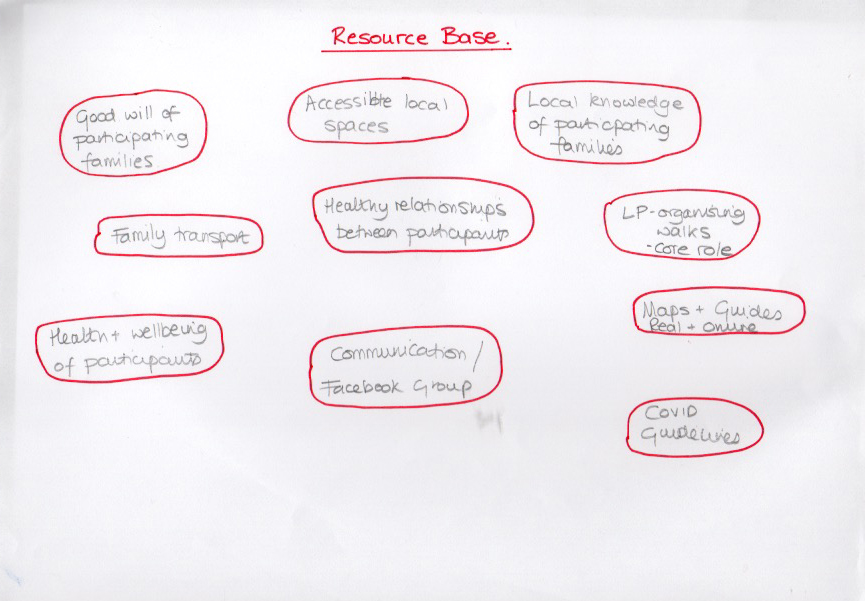 Resource Base.
Good will of
participating
families
Accessible local
spaces
Local knowledge
of participating
families
Family transport
Healthy relationships
between participants
LP-organising
walks
-core role
Maps + Guides
Real + online
Health + wellbeing
of participants
Communication /
Facebook Group
COVID
Guidelines